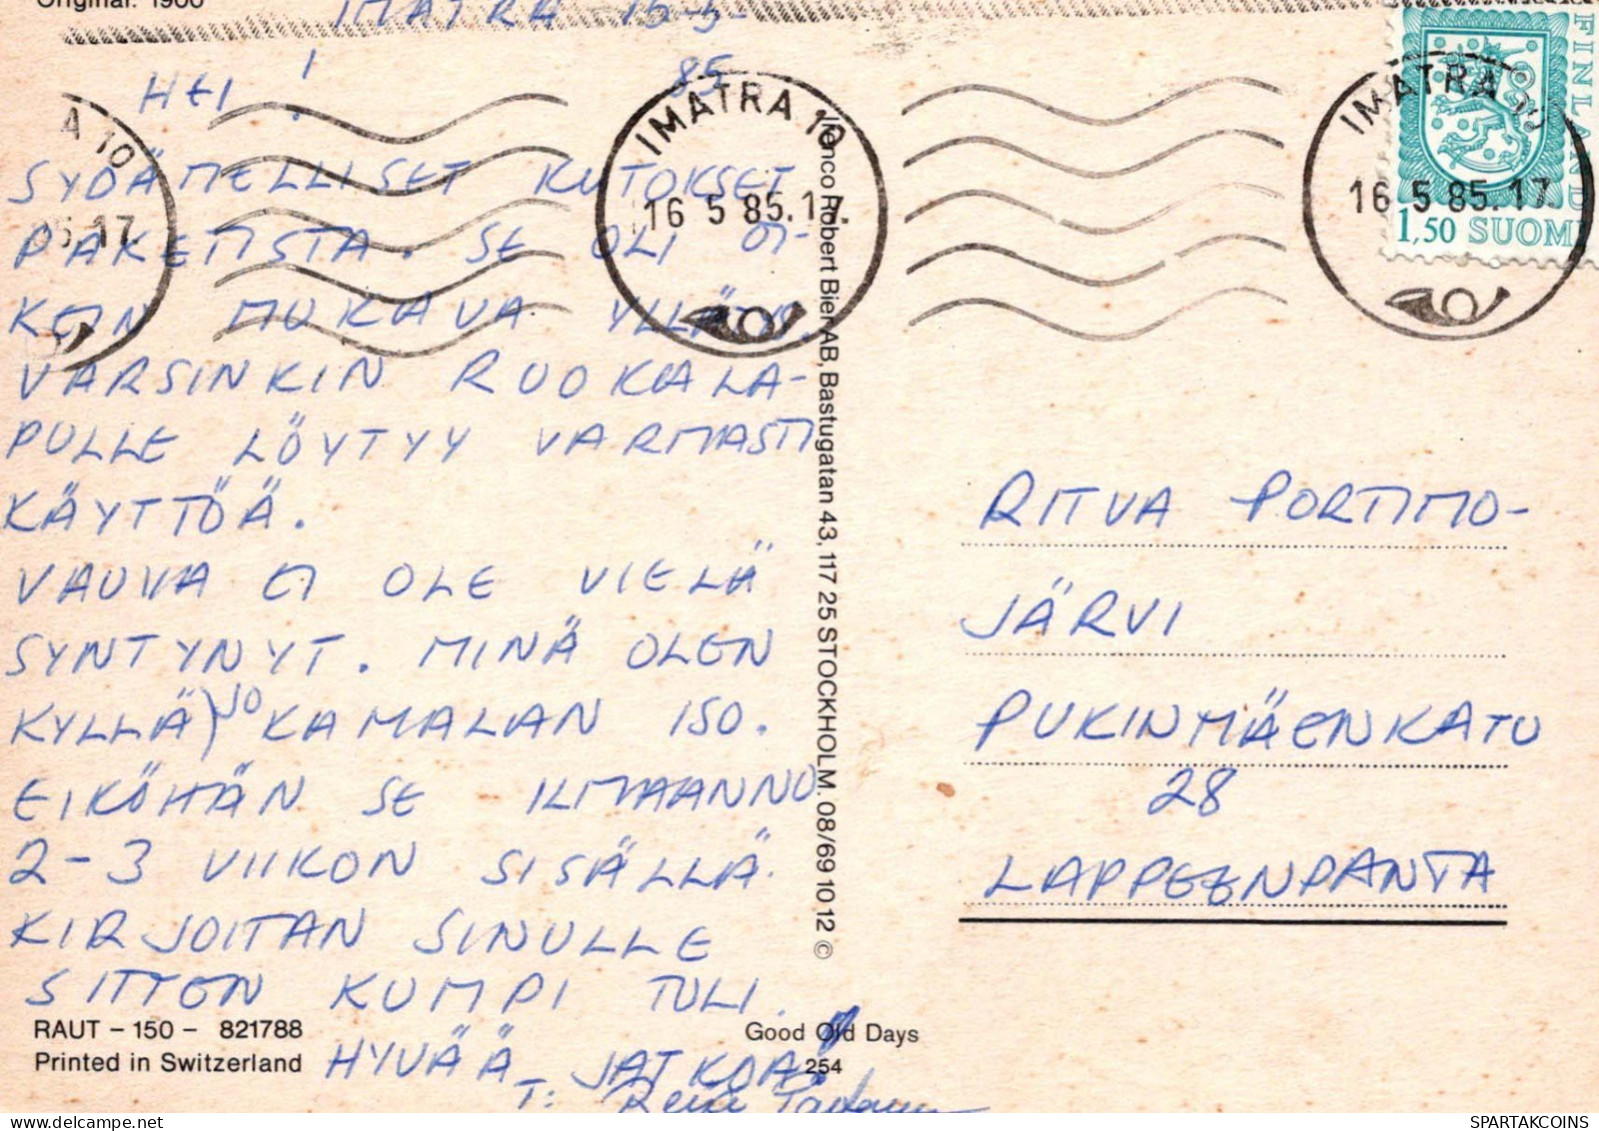 Original: 1900
IMATRA 15-5-
85
HEI!
SYDÄMELLISET KIITOKSET
PAKETISTA. SE OLI OI-
KEIN MUKAVA YLLÄTYS.
VARSINKIN RUOKALA-
PULLE LÖYTYY VARMASTI
KÄYTTÖÄ.
VAUVA EI OLE VIELÄ
SYNTYNYT. MINÄ OLEN
KYLLÄ JO KAMALAN ISO.
EIKÖHÄN SE ILMAANNU
2-3 VIIKON SISÄLLÄ.
KIRJOITAN SINULLE
SITTEN KUMPI TULI.
HYVÄÄ JATKOA!
T:
RAUT – 150 – 821788
Printed in Switzerland
Good Old Days
254
Robert Bier AB, Bastugatan 43, 117 25 STOCKHOLM. 08/69 10 12 ©
A 10
85.17
IMATRA 10
16 5 85.17.
IMATRA 10
16 5 85.17.
FINLAND
1,50 SUOMI
RITVA PORTIMO-
JÄRVI
PUKINMÄENKATU
28
LAPPEENRANTA
SPARTAKCOINS